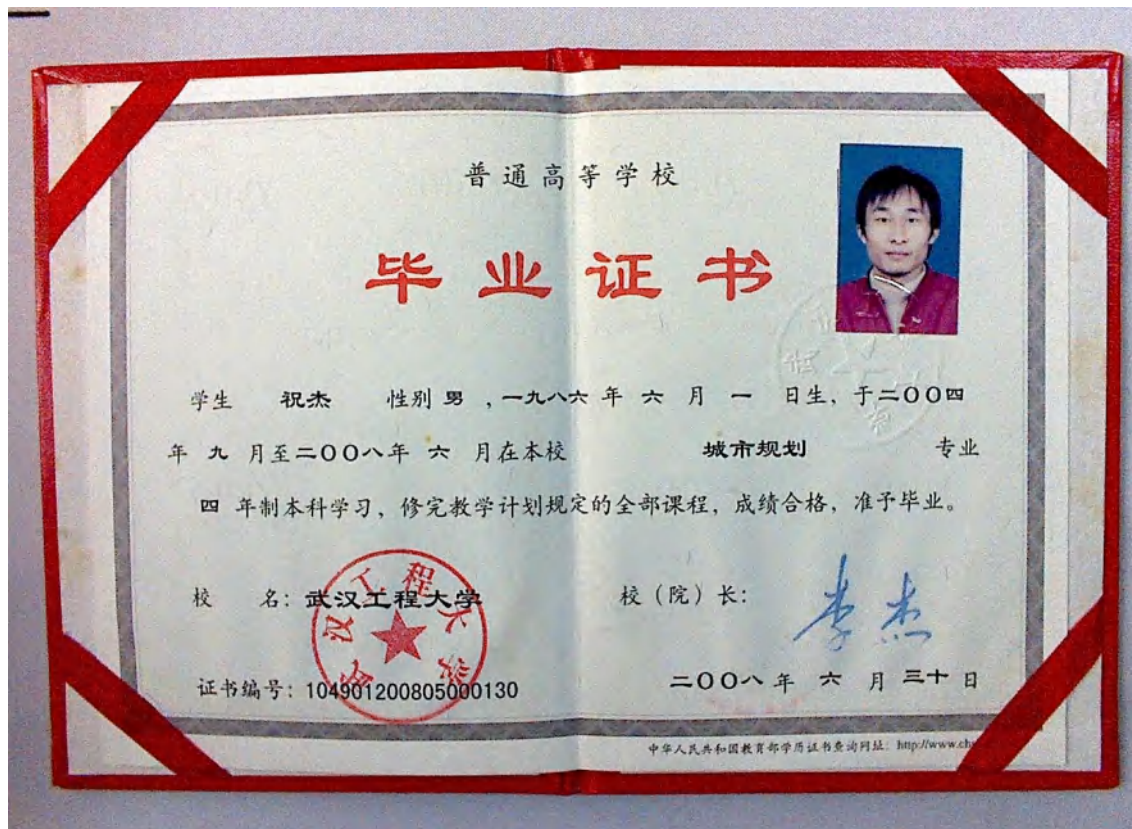 普通高等学校
毕业证书
学生 祝杰 性别 男 ，一九八六 年 六 月 一 日生，于二00四
年 九 月至二00八年 六 月在本校 城市规划 专业
四 年制本科学习，修完教学计划规定的全部课程，成绩合格，准予毕业。
校 名：武汉工程大学 校（院）长： 李杰
武汉工程大学
证书编号：104901200805000130 二00八 年 六 月 三十 日
中华人民共和国教育部学历证书查询网址：http://www.ch